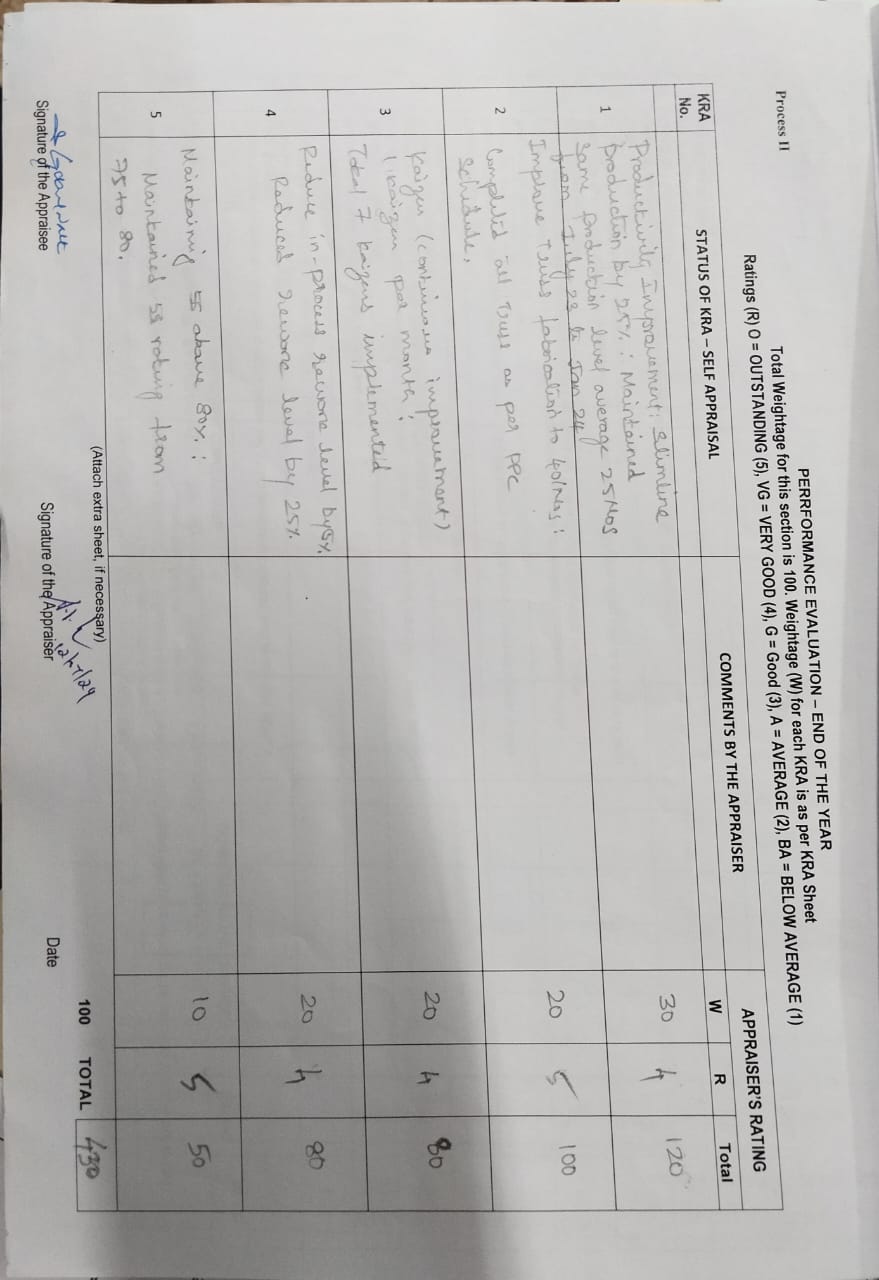 Process II
PERRFORMANCE EVALUATION – END OF THE YEAR
Total Weightage for this section is 100. Weightage (W) for each KRA is as per KRA Sheet
Ratings (R) O = OUTSTANDING (5), VG = VERY GOOD (4), G = Good (3), A = AVERAGE (2), BA = BELOW AVERAGE (1)
KRA No. STATUS OF KRA – SELF APPRAISAL COMMENTS BY THE APPRAISER APPRAISER'S RATING
W R Total
1 Productivity Improvement: Slimline
production by 25% : Maintained
same production level average 25 Nos
from July 23 to Jan 24
30 4 120
2 Improve Truss fabrication to 40/Nos :
Completed all Truss as per PPC
schedule.
20 5 100
3 Kaizen (continuous improvement)
1 kaizen per month :
Total 7 kaizens implemented
20 4 80
4 Reduce in-process rework level by
Reduced rework level by 25%
20 4 80
5 Maintaining 5S above 80% :
Maintained 5S rating from
75 to 80.
10 5 50
(Attach extra sheet, if necessary)
100 TOTAL 430
Signature of the Appraisee Signature of the Appraiser Date